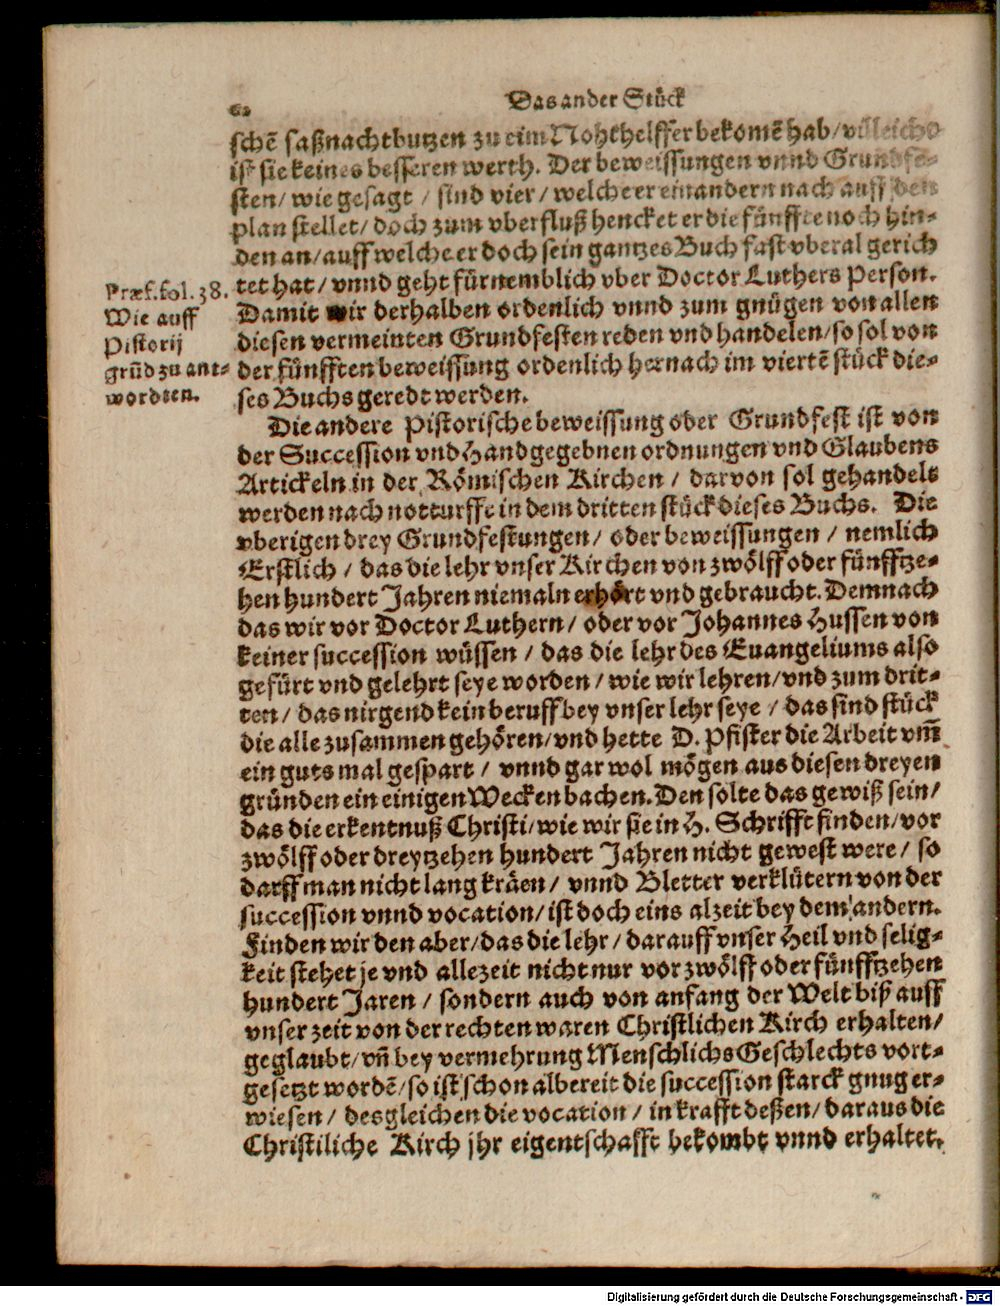 62
Das ander Stück
schē faßnachtbutzen zu eim Nohthelffer bekomē hab/ villeicht
ist sie keines besseren werth. Der beweissungen vnnd Grundfe-
sten/ wie gesagt / sind vier/ welche er einandern nach auff den
plan stellet/ doch zum vberfluß hencket er die fünffte noch hin-
den an/ auff welche er doch sein gantzes Buch fast vberal gerich
tet hat/ vnnd geht fürnemblich vber Doctor Luthers Person.
Damit wir derhalben ordenlich vnnd zum gnügen von allen
diesen vermeinten Grundfesten reden vnd handelen/ so sol von
der fünfften beweissung ordenlich hernach im viertē stück die-
ses Buchs geredt werden.
Præf. fol. 38.
Wie auff
Pistorij
grūd zu ant-
wordten.
Die andere Pistorische beweissung oder Grundfest ist von
der Succession vnd Handgegebnen ordnungen vnd Glaubens
Artickeln in der Römischen Kirchen / darvon sol gehandelt
werden nach notturfft in dem dritten stück dieses Buchs. Die
vberigen drey Grundfestungen/ oder beweissungen / nemlich
Erstlich / das die lehr vnser Kirchen von zwölff oder fünfftze-
hen hundert Jahren niemaln erhört vnd gebraucht. Demnach
das wir vor Doctor Luthern/ oder vor Johannes Hussen von
keiner succession wüssen / das die lehr des Euangeliums also
gefürt vnd gelehrt seye worden / wie wir lehren/ vnd zum drit-
ten/ das nirgend kein beruff bey vnser lehr seye / das sind stück
die alle zusammen gehören/ vnd hette D. Pfister die Arbeit vm̄
ein guts mal gespart / vnnd gar wol mögen aus diesen dreyen
gründen ein einigen Wecken bachen. Den solte das gewiß sein/
das die erkentnuß Christi/ wie wir sie in H. Schrifft finden/ vor
zwölff oder dreytzehen hundert Jahren nicht gewest were / so
darff man nicht lang kräen/ vnnd Bletter verklütern von der
succession vnnd vocation/ ist doch eins alzeit bey dem andern.
Finden wir den aber/ das die lehr / darauff vnser Heil vnd selig-
keit stehet je vnd allezeit nicht nur vor zwölff oder fünfftzehen
hundert Jaren / sondern auch von anfang der Welt biß auff
vnser zeit von der rechten waren Christlichen Kirch erhalten/
geglaubt/ vn̄ bey vermehrung Menschlichs Geschlechts vort-
gesetzt wordē/ so ist schon albereit die succession starck gnug er-
wiesen / desgleichen die vocation / in krafft deßen/ daraus die
Christiliche Kirch jhr eigentschafft bekombt vnnd erhaltet.
Digitalisierung gefördert durch die Deutsche Forschungsgemeinschaft - DFG